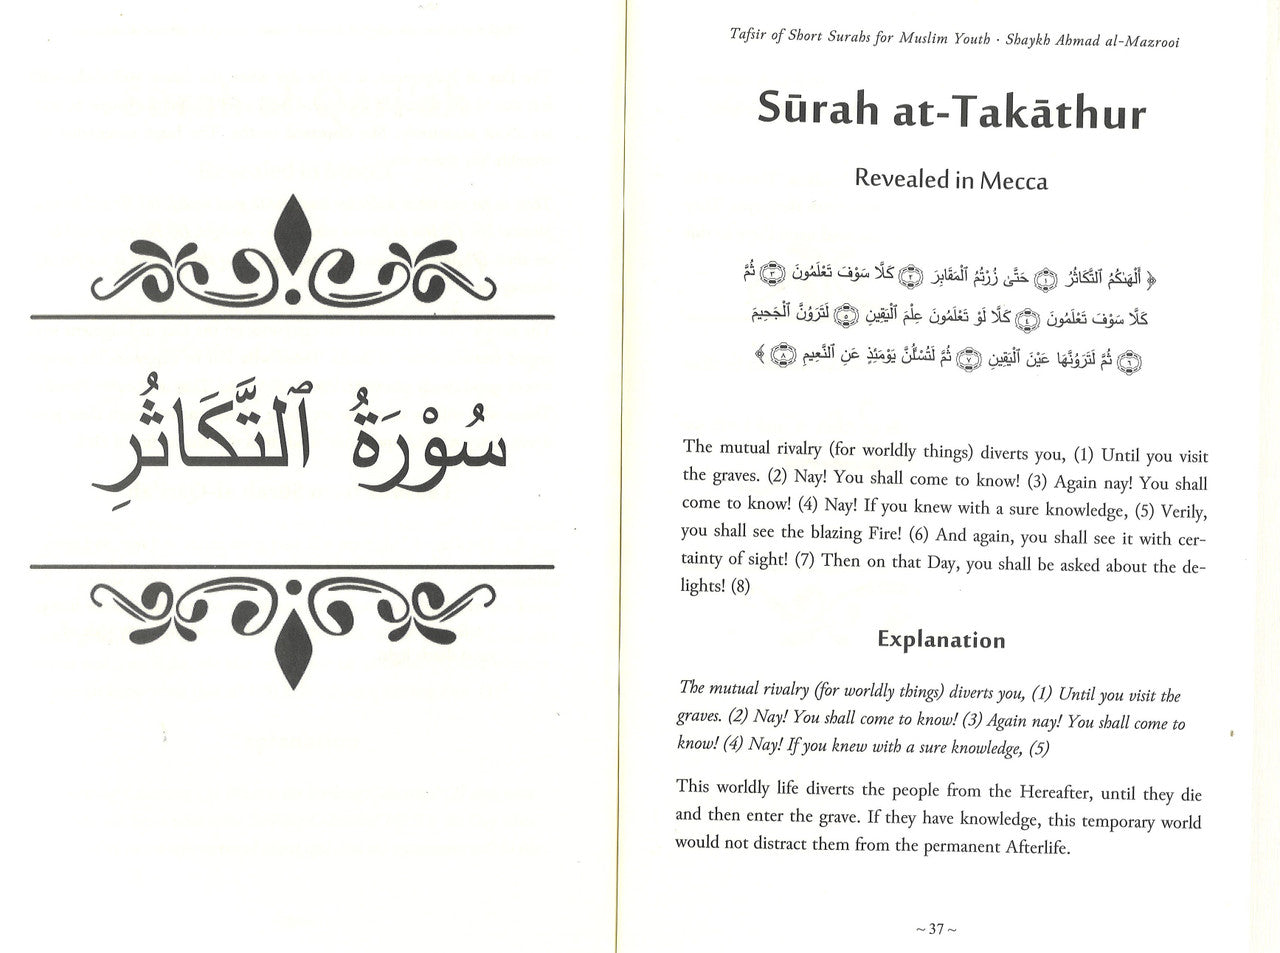 سُوْرَةُ ٱلتَّكَاثُرِ
Tafsir of Short Surahs for Muslim Youth · Shaykh Ahmad al-Mazrooi
Sūrah at-Takāthur
Revealed in Mecca
﴿ أَلْهَىٰكُمُ ٱلتَّكَاثُرُ ۝١ حَتَّىٰ زُرْتُمُ ٱلْمَقَابِرَ ۝٢ كَلَّا سَوْفَ تَعْلَمُونَ ۝٣ ثُمَّ
كَلَّا سَوْفَ تَعْلَمُونَ ۝٤ كَلَّا لَوْ تَعْلَمُونَ عِلْمَ ٱلْيَقِينِ ۝٥ لَتَرَوُنَّ ٱلْجَحِيمَ
۝٦ ثُمَّ لَتَرَوُنَّهَا عَيْنَ ٱلْيَقِينِ ۝٧ ثُمَّ لَتُسْـَٔلُنَّ يَوْمَئِذٍ عَنِ ٱلنَّعِيمِ ۝٨ ﴾
The mutual rivalry (for worldly things) diverts you, (1) Until you visit
the graves. (2) Nay! You shall come to know! (3) Again nay! You shall
come to know! (4) Nay! If you knew with a sure knowledge, (5) Verily,
you shall see the blazing Fire! (6) And again, you shall see it with cer-
tainty of sight! (7) Then on that Day, you shall be asked about the de-
lights! (8)
Explanation
The mutual rivalry (for worldly things) diverts you, (1) Until you visit the
graves. (2) Nay! You shall come to know! (3) Again nay! You shall come to
know! (4) Nay! If you knew with a sure knowledge, (5)
This worldly life diverts the people from the Hereafter, until they die
and then enter the grave. If they have knowledge, this temporary world
would not distract them from the permanent Afterlife.
~ 37 ~